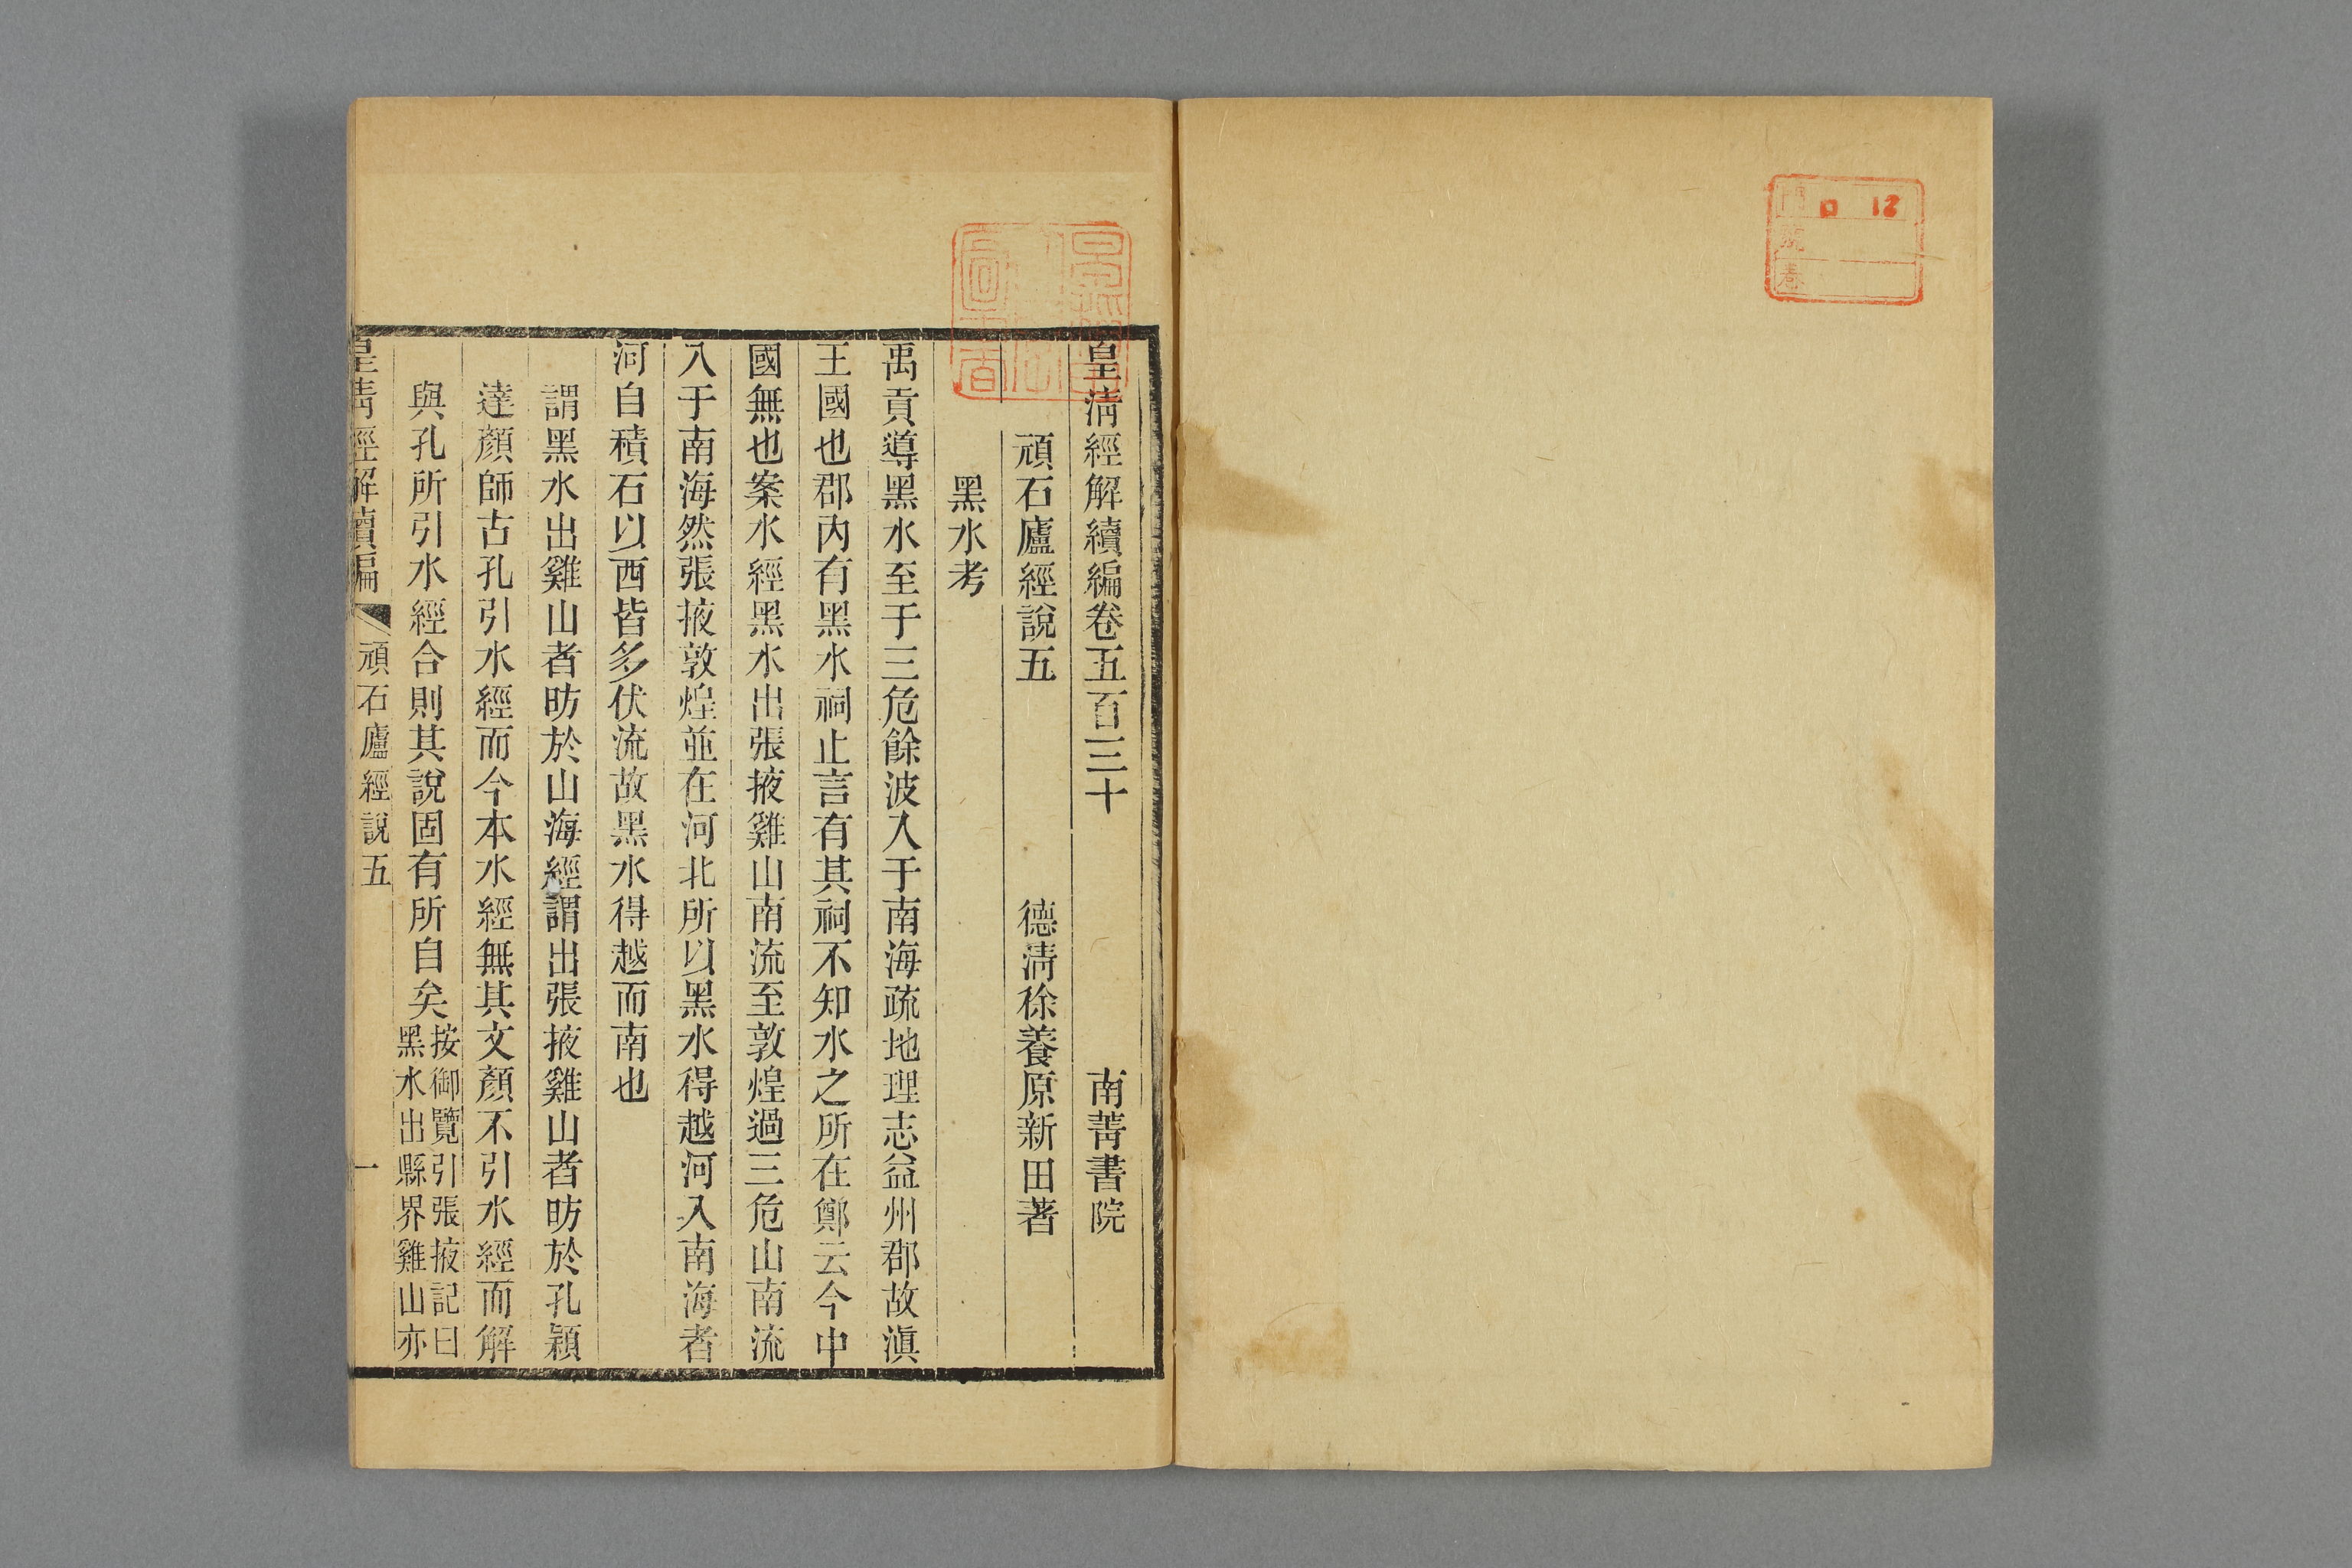 ロ 12
門
號
巻
皇清經解續編卷五百三十 南菁書院
頑石廬經說五 德清徐養原新田著
黑水考
禹貢導黑水至于三危餘波入于南海疏地理志益州郡故滇
王國也郡內有黑水祠止言有其祠不知水之所在鄭云今中
國無也案水經黑水出張掖雞山南流至敦煌過三危山南流
入于南海然張掖敦煌並在河北所以黑水得越河入南海者
河自積石以西皆多伏流故黑水得越而南也
謂黑水出雞山者昉於山海經謂出張掖雞山者昉於孔穎
達顏師古孔引水經而今本水經無其文顏不引水經而解
與孔所引水經合則其說固有所自矣按御覽引張掖記曰
黑水出縣界雞山亦
皇清經解續編 頑石廬經說五 一